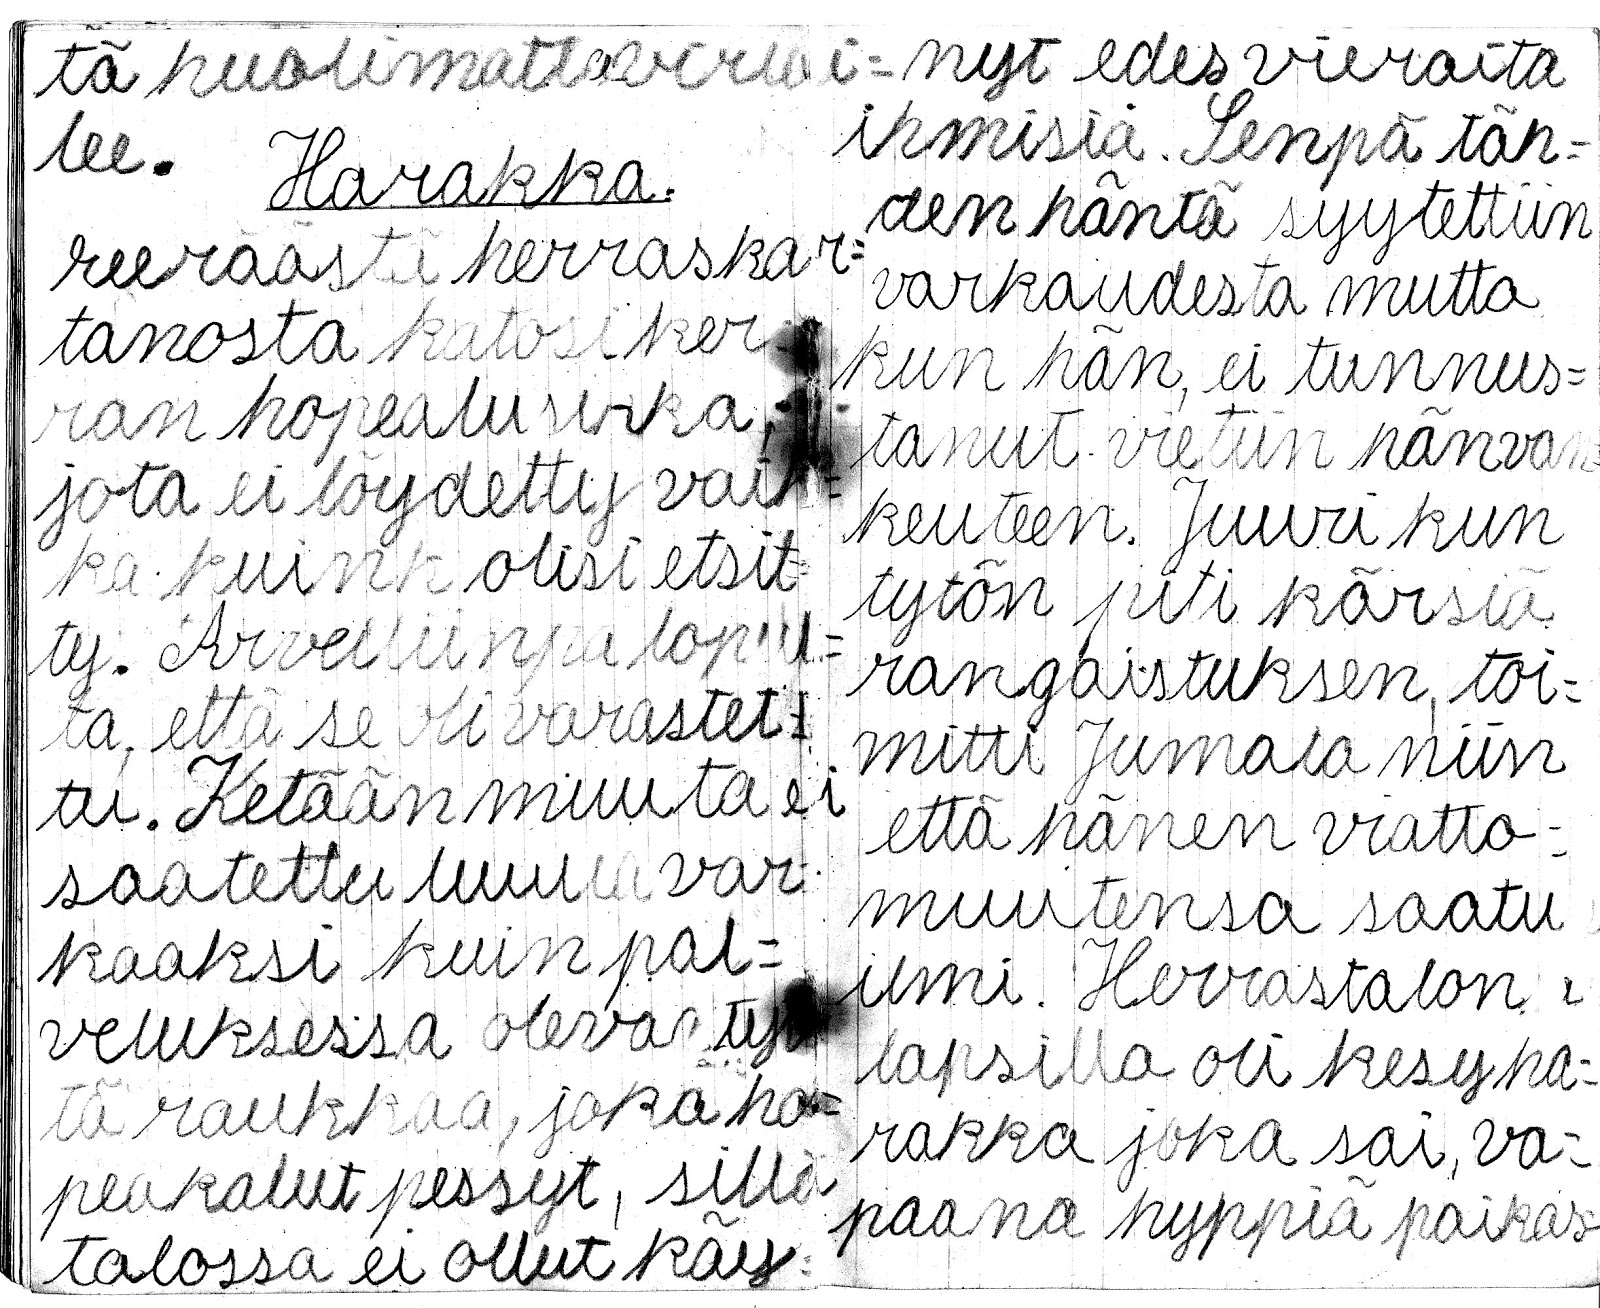 tä huolimatta virtai=
lee.
Harakka.
reeräästä herraskar=
tanosta katosi ker
ran hopealusikka,
jota ei löydetty vaik=
ka kuink olisi etsit=
ty. Arveltiinpa lopul=
ta, että se oli varastet=
tu. Ketään muuta ei
saatettu luulla var
kaaksi kuin pal=
veluksessa olevaa tyt
tä raukkaa, joka ho=
peakalut pessyt, sillä
talossa ei ollut käy=
nyt edes vieraita
ihmisiä. Senpä täh=
den häntä syytettiin
varkaudesta mutta
kun hän, ei tunnus=
tanut vietiin hän van
keuteen. Juuri kun
tytön piti kärsiä
rangaistuksen, toi=
mitti Jumala niin
että hänen viatto=
muutensa saatu
ilmi. Herrastalon
lapsilla oli kesy ha=
rakka joka sai, va=
paana hyppiä paikas